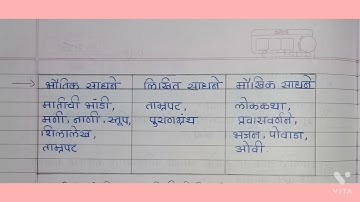 भौतिक साधने
लिखित साधने
मौखिक साधने
मातीची भांडी,
मणी, नाणी, स्तूप,
शिलालेख,
ताम्रपट
ताम्रपट,
पुराणग्रंथ
लोककथा,
प्रवासवर्णने,
भजन, पोवाडा,
ओवी.
VITA